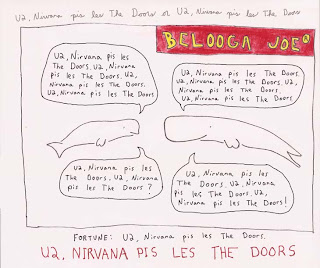 U2, Nirvana pis les The Doors or U2, Nirvana pis les The Doors
BELOOGA JOE®
U2, Nirvana pis les
The Doors. U2, Nirvana
pis les The Doors. U2,
Nirvana pis les The Doors.
U2, Nirvana pis les The Doors
U2, Nirvana pis les The Doors.
U2, Nirvana pis les The Doors. U2,
Nirvana pis les The Doors.
U2, Nirvana pis les The Doors
U2, Nirvana pis les
The Doors. U2, Nirvana
pis les The Doors?
U2, Nirvana pis les
The Doors. U2, Nirvana
pis les The Doors. U2,
Nirvana pis les The Doors!
FORTUNE: U2, Nirvana pis les The Doors.
U2, NIRVANA PIS LES THE DOORS